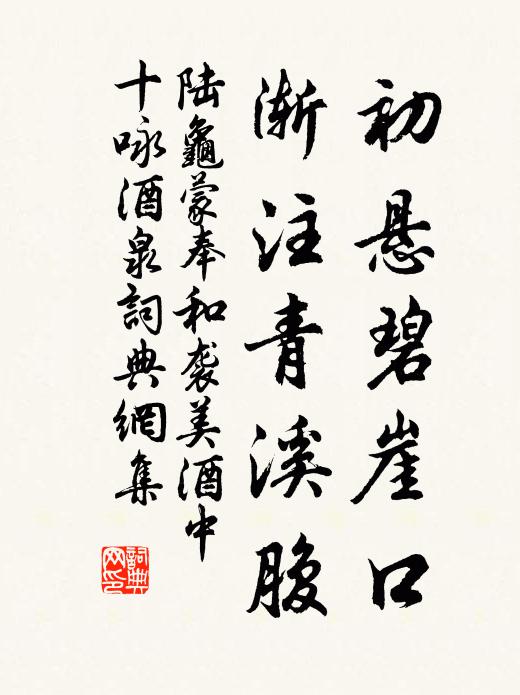 初悬碧崖口
渐注青溪腹
陆龜蒙奉和袭美酒中
十咏酒泉詞典網集
詞典网印